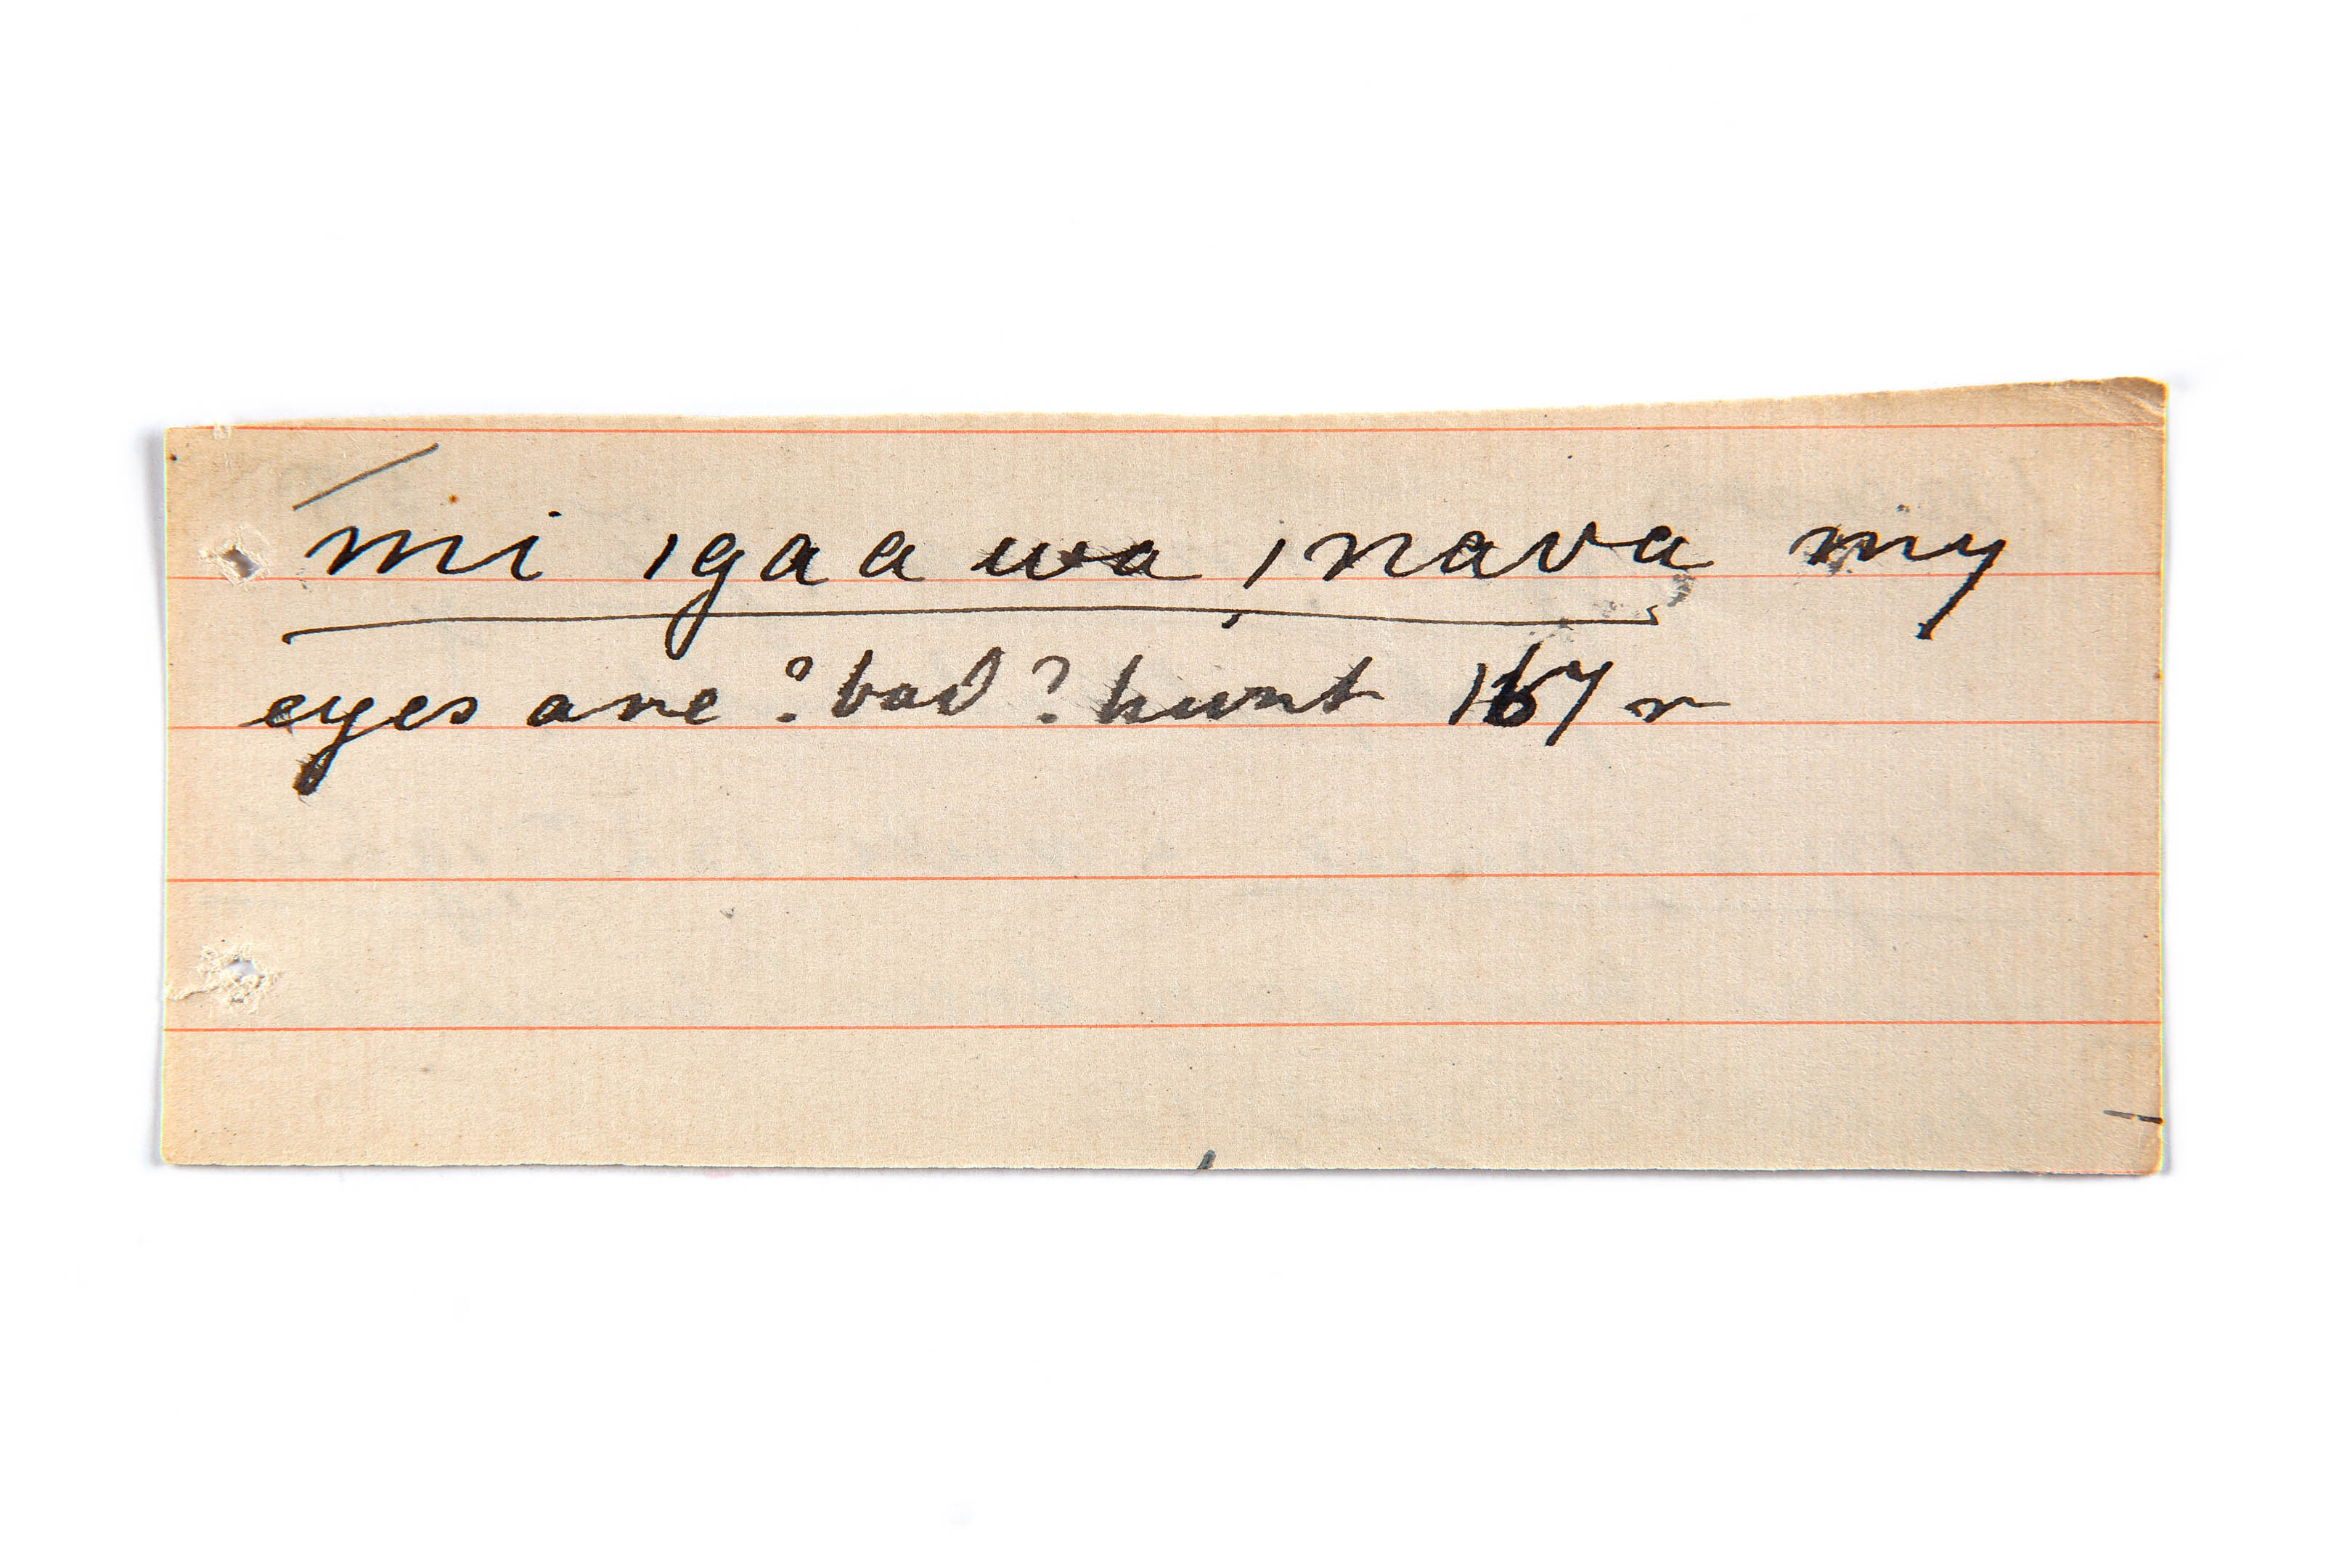 mi ıgaa wa ınava my
eyes are ? bad ? hurt 167 r